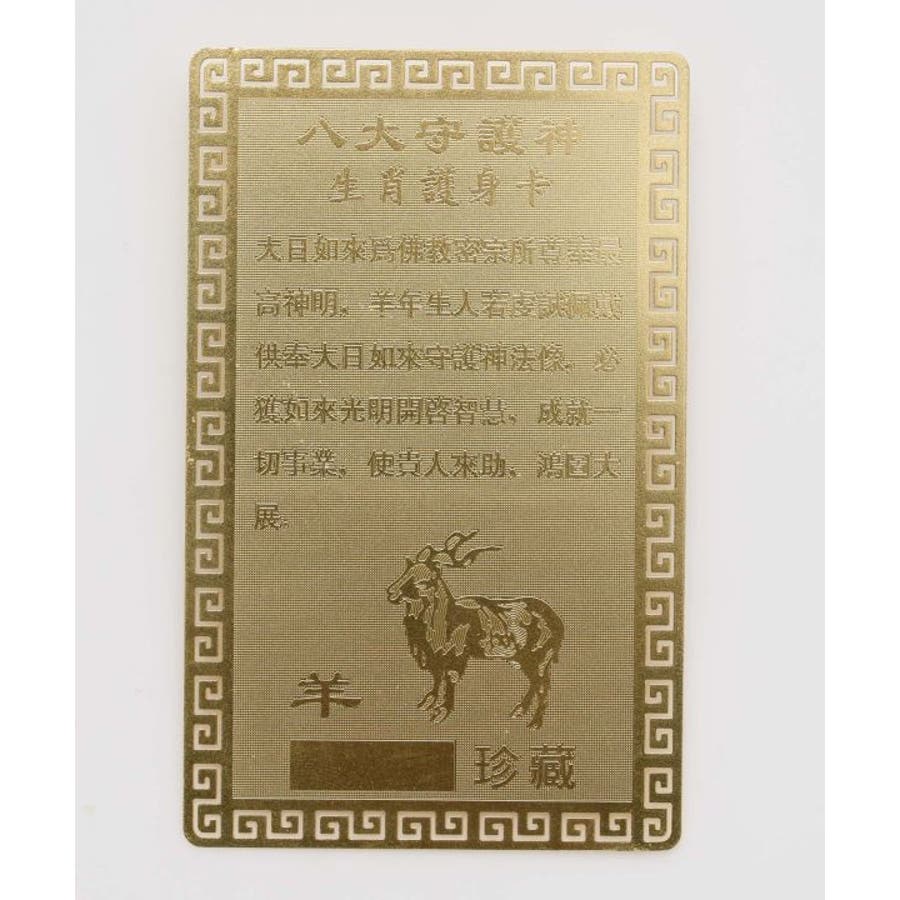 八大守護神
生肖護身卡
大日如來爲佛教密宗所尊奉最
高神明，羊年生人若虔誠佩戴
供奉大日如來守護神法像，必
獲如來光明開啓智慧，成就一
切事業，使貴人來助，鴻圖大
展。
羊
珍藏